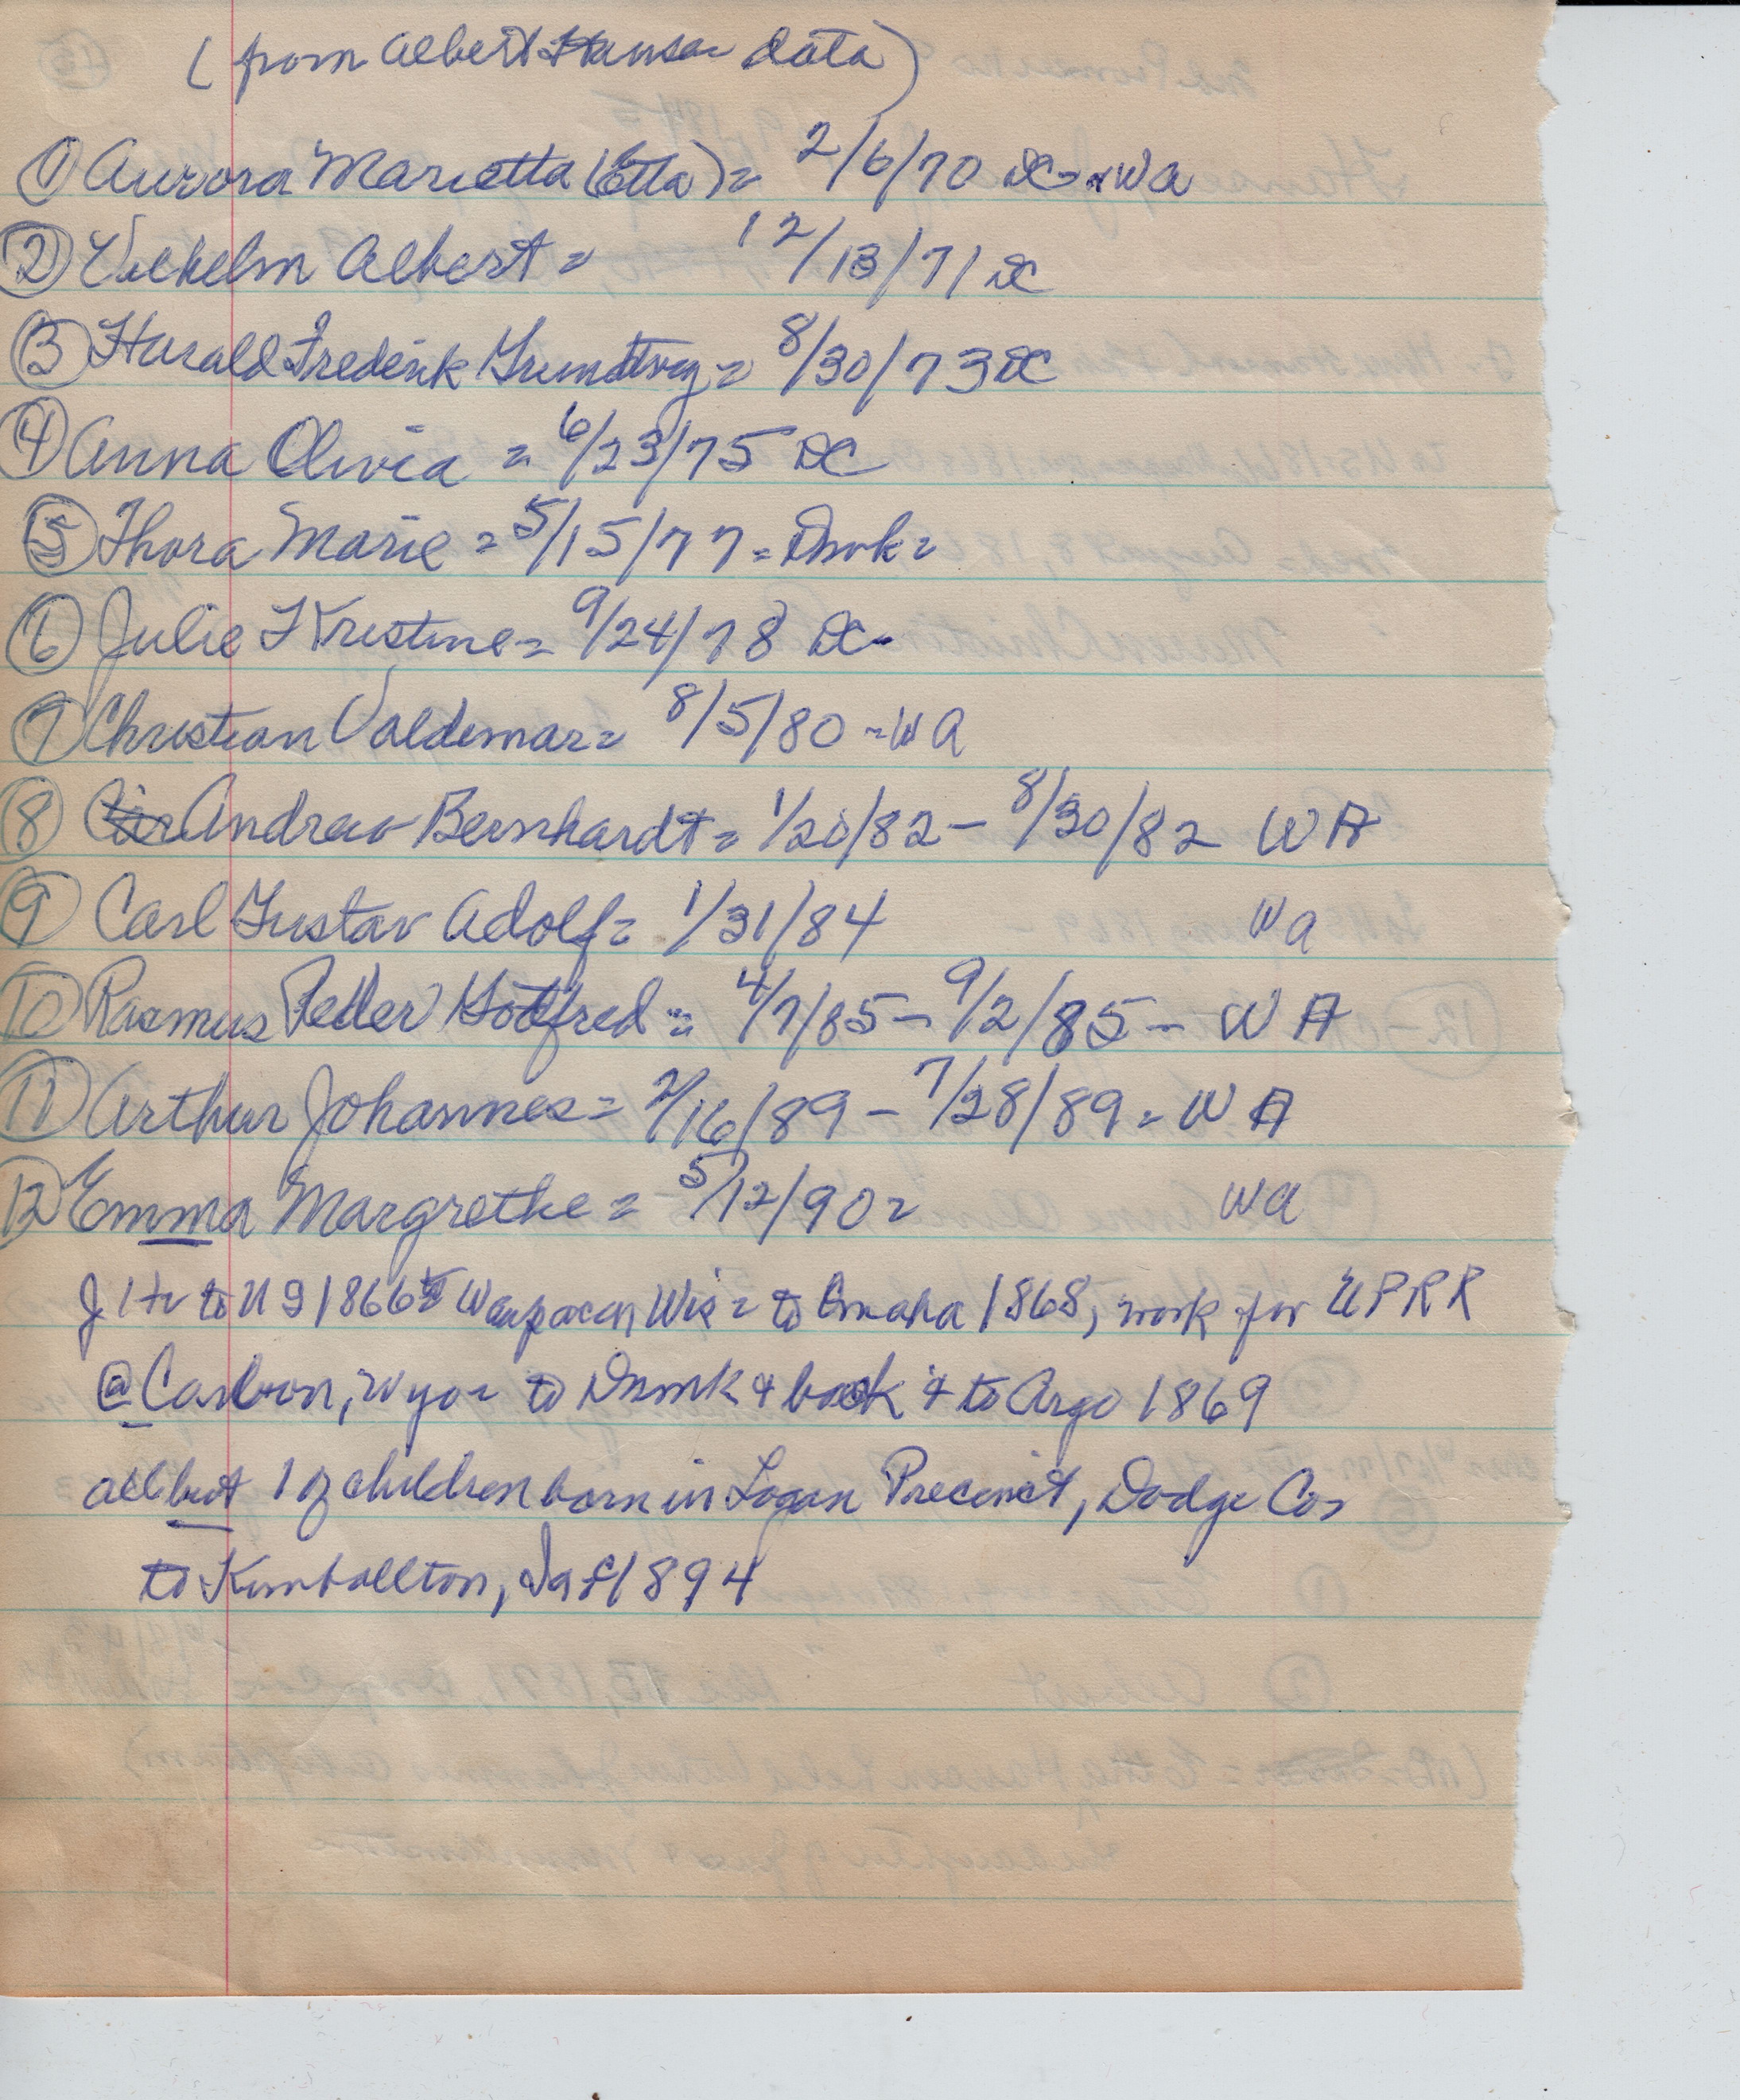 (from Albert Hansen data)
① Aurora Marietta (Etta) = 2/6/70 DC - WA
② Vilhelm Albert = 12/13/71 DC
③ Harald Frederik Grundtvig = 8/30/73 DC
④ Anna Olivia = 6/23/75 DC
⑤ Thora Marie = 5/15/77 = Dmk =
⑥ Julie Kristine = 9/24/78 DC -
⑦ Christian Valdemar = 8/5/80 - WA
⑧ Andrew Bernhardt = 1/20/82 - 8/30/82 WA
⑨ Carl Gustav Adolf = 1/31/84 Wa
⑩ Rasmus Peder Gotfred = 4/7/85 - 9/2/85 - WA
⑪ Arthur Johannes = 2/16/89 - 7/28/89 = WA
⑫ Emma Margrethe = 5/12/90 = Wa
JH to US 1866 Waupacca, Wis = to Omaha 1868, work for UPRR
@ Carbon, Wyo = to Dnmk & back & to Argo 1869
all but 1 of children born in Logan Precinct, Dodge Co,
to Kimballton, Ia 1894